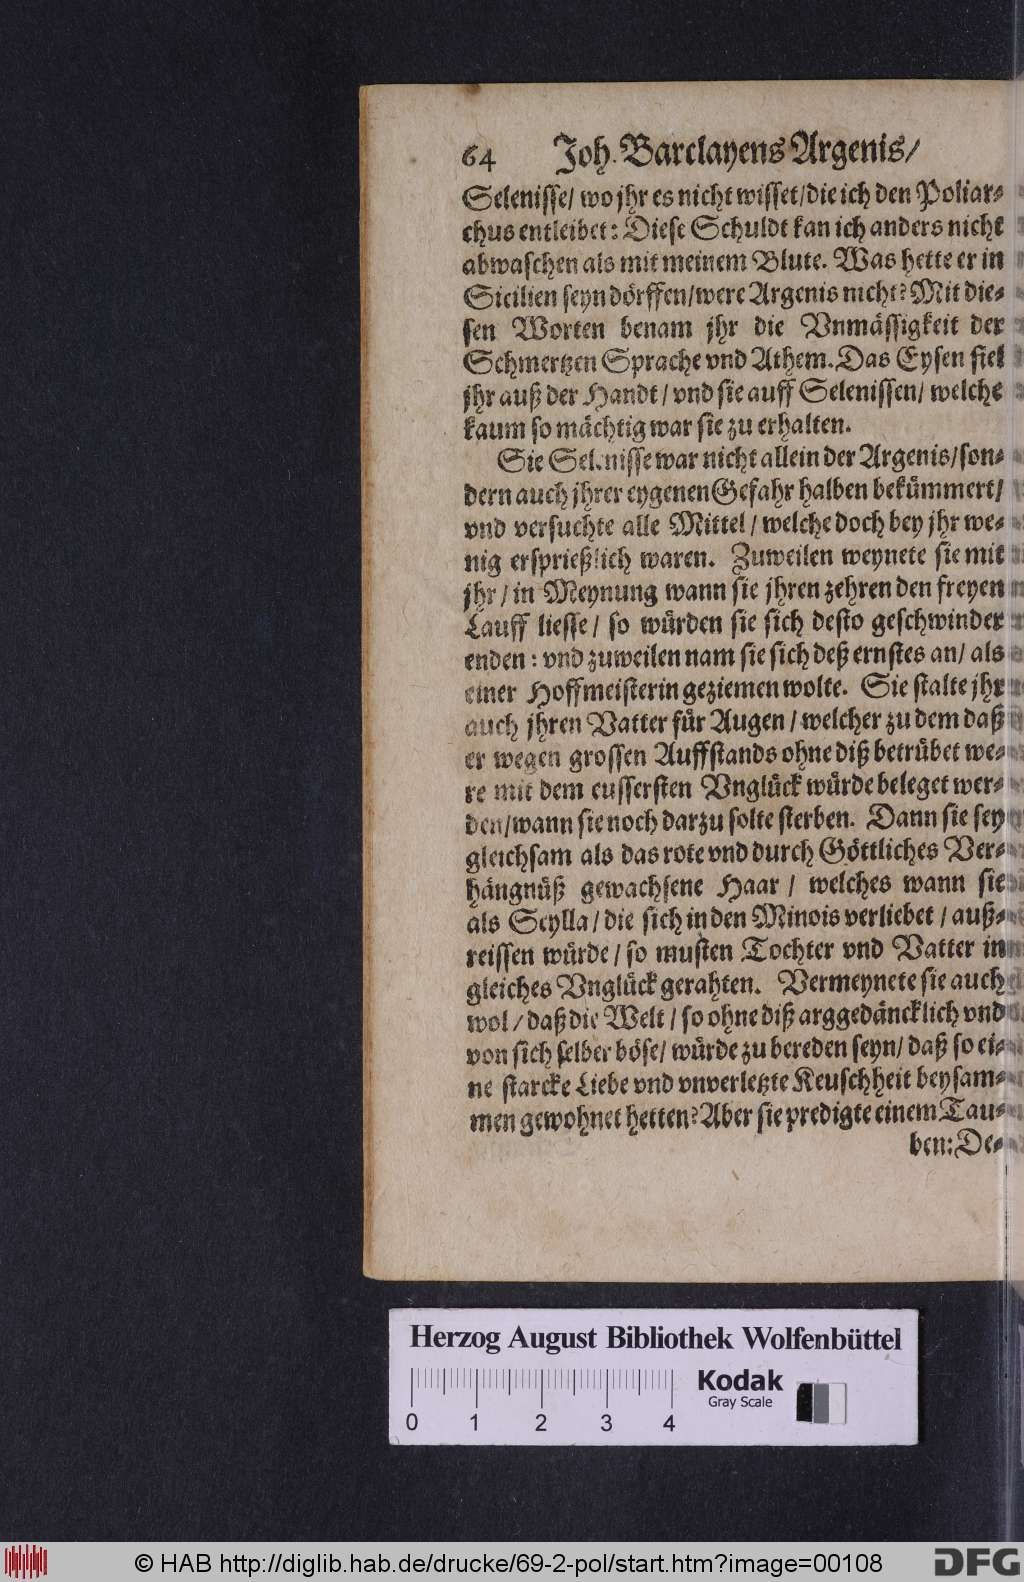 64 Joh. Barclayens Argenis/
Selenisse/ wo jhr es nicht wisset/die ich den Poliar-
chus entleibet: Diese Schuldt kan ich anders nicht
abwaschen als mit meinem Blute. Was hette er in
Sicilien seyn dörffen/were Argenis nicht? Mit die-
sen Worten benam jhr die Vnmässigkeit der
Schmertzen Sprache vnd Athem. Das Eysen fiel
jhr auß der Handt/ vnd sie auff Selenissen/ welche
kaum so mächtig war sie zu erhalten.
Sie Selenisse war nicht allein der Argenis/son-
dern auch jhrer eygenen Gefahr halben bekümmert/
vnd versuchte alle Mittel/ welche doch bey jhr we-
nig ersprießlich waren. Zuweilen weynete sie mit
jhr/ in Meynung wann sie jhren zehren den freyen
Lauff liesse/ so würden sie sich desto geschwinder
enden: vnd zuweilen nam sie sich deß ernstes an/ als
einer Hoffmeisterin geziemen wolte. Sie stalte jhr
auch jhren Vatter für Augen/ welcher zu dem daß
er wegen grossen Auffstands ohne diß betrübet we-
re mit dem eussersten Vnglück würde beleget wer-
den/wann sie noch darzu solte sterben. Dann sie sey
gleichsam als das rote vnd durch Göttliches Ver-
hängnüß gewachsene Haar/ welches wann sie
als Scylla/ die sich in den Minois verliebet/ auß-
reissen würde/ so musten Tochter vnd Vatter in
gleiches Vnglück gerahten. Vermeynete sie auch
wol/ daß die Welt/ so ohne diß arggedäncklich vnd
von sich selber böse/ würde zu bereden seyn/ daß so ei-
ne starcke Liebe vnd vnverletzte Keuschheit beysam-
men gewohnet hetten? Aber sie predigte einem Tau-
ben: De-
Herzog August Bibliothek Wolfenbüttel
Kodak
Gray Scale
0 1 2 3 4
© HAB http://diglib.hab.de/drucke/69-2-pol/start.htm?image=00108
DFG